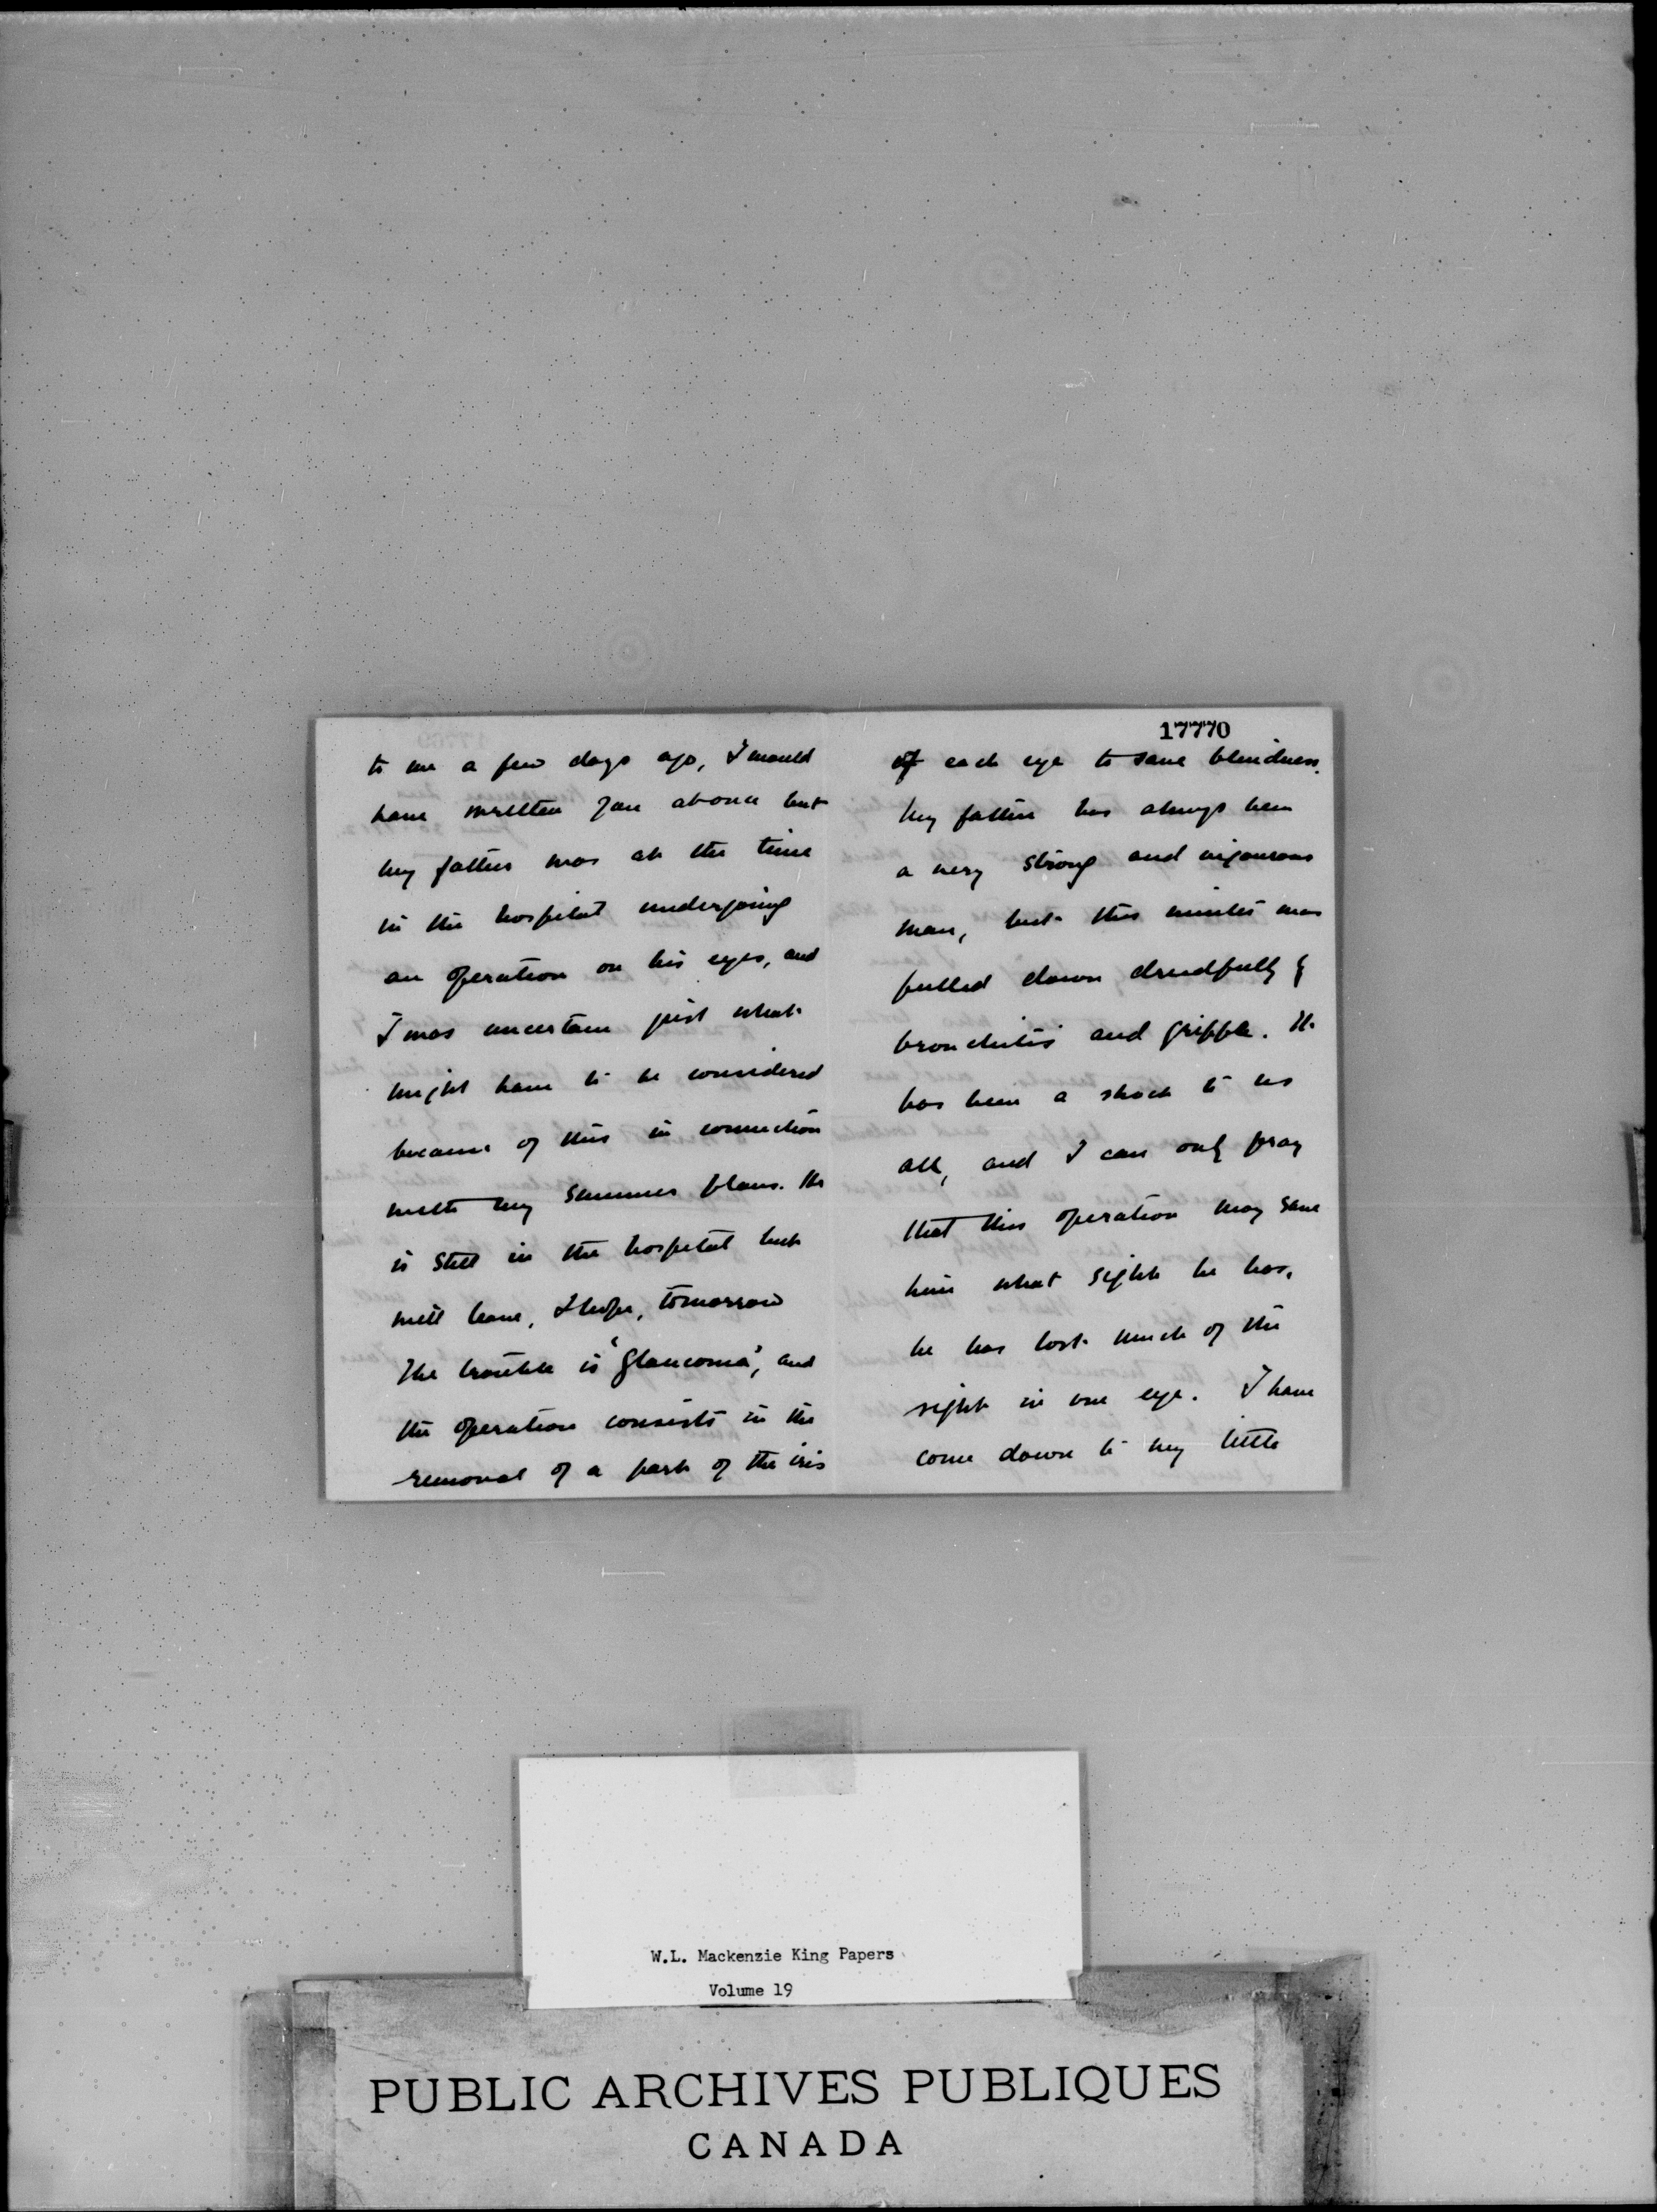 to me a few days ago, I would
have written you at once but
my father was at the time
in the hospital undergoing
an operation on his eyes, and
I was uncertain just what
might have to be considered
because of this in connection
with my summer plans. He
is still in the hospital but
will leave, I hope, tomorrow
The trouble is 'glaucoma', and
the operation consists in the
removal of a part of the iris
17770
of each eye to save blindness.
My father has always been
a very strong and vigourous
man, but this winter was
pulled down dreadfully by
bronchitis and grippe. It
has been a shock to us
all, and I can only pray
that this operation may save
him what sight he has,
he has lost much of the
sight in one eye. I have
come down to my little
W.L. Mackenzie King Papers
Volume 19
PUBLIC ARCHIVES PUBLIQUES
CANADA